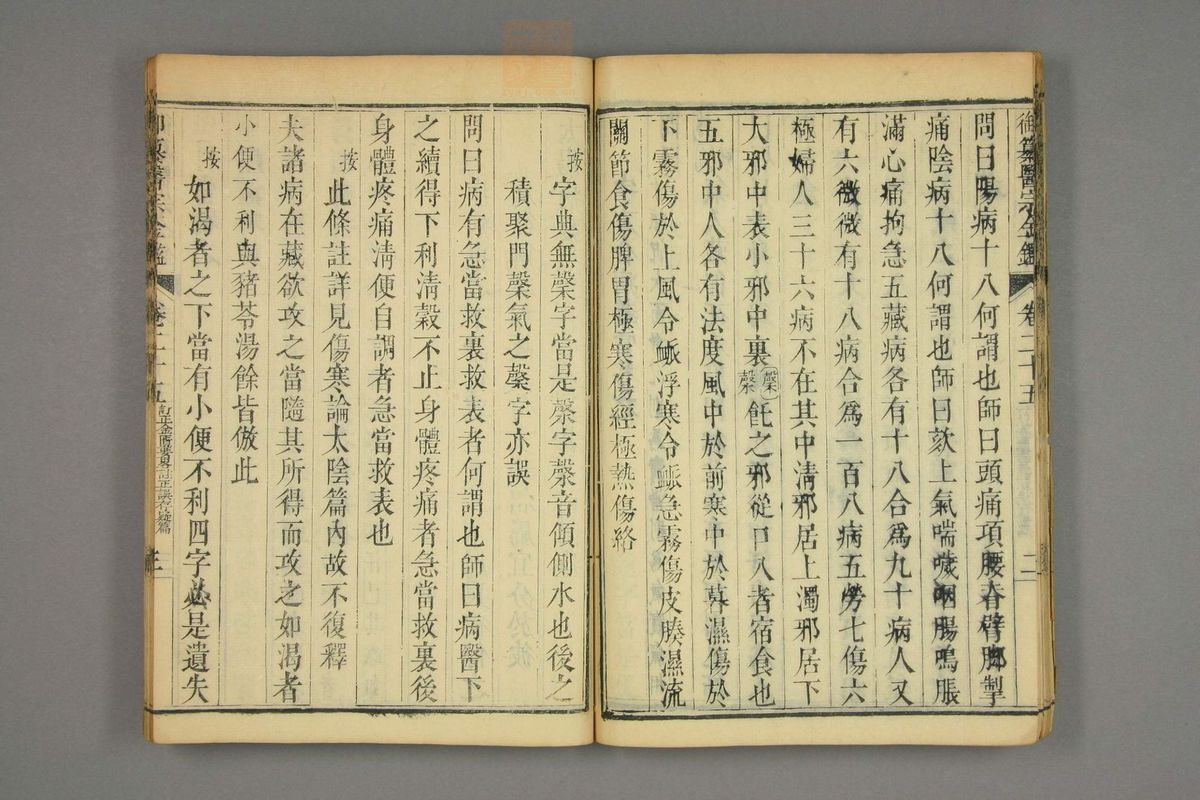 御纂醫宗金鑑 卷二十五 二
問曰陽病十八何謂也師曰頭痛項腰脊臂脚掣
痛陰病十八何謂也師曰欬上氣喘噦咽腸鳴脹
滿心痛拘急五藏病各有十八合爲九十病人又
有六微微有十八病合爲一百八病五勞七傷六
極婦人三十六病不在其中清邪居上濁邪居下
大邪中表小邪中裏䅽飥之邪從口入者宿食也
五邪中人各有法度風中於前寒中於暮濕傷於
下霧傷於上風令脈浮寒令脈急霧傷皮腠濕流
關節食傷脾胃極寒傷經極熱傷絡
按字典無䅽字當是漀字漀音傾側水也後之
積聚門䅽氣之䅽字亦誤
問曰病有急當救裏救表者何謂也師曰病醫下
之續得下利清穀不止身體疼痛者急當救裏後
身體疼痛清便自調者急當救表也
按此條註詳見傷寒論太陰篇內故不復釋
夫諸病在藏欲攻之當隨其所得而攻之如渴者
小便不利與豬苓湯餘皆倣此
按如渴者之下當有小便不利四字必是遺失
御纂醫宗金鑑 卷二十五